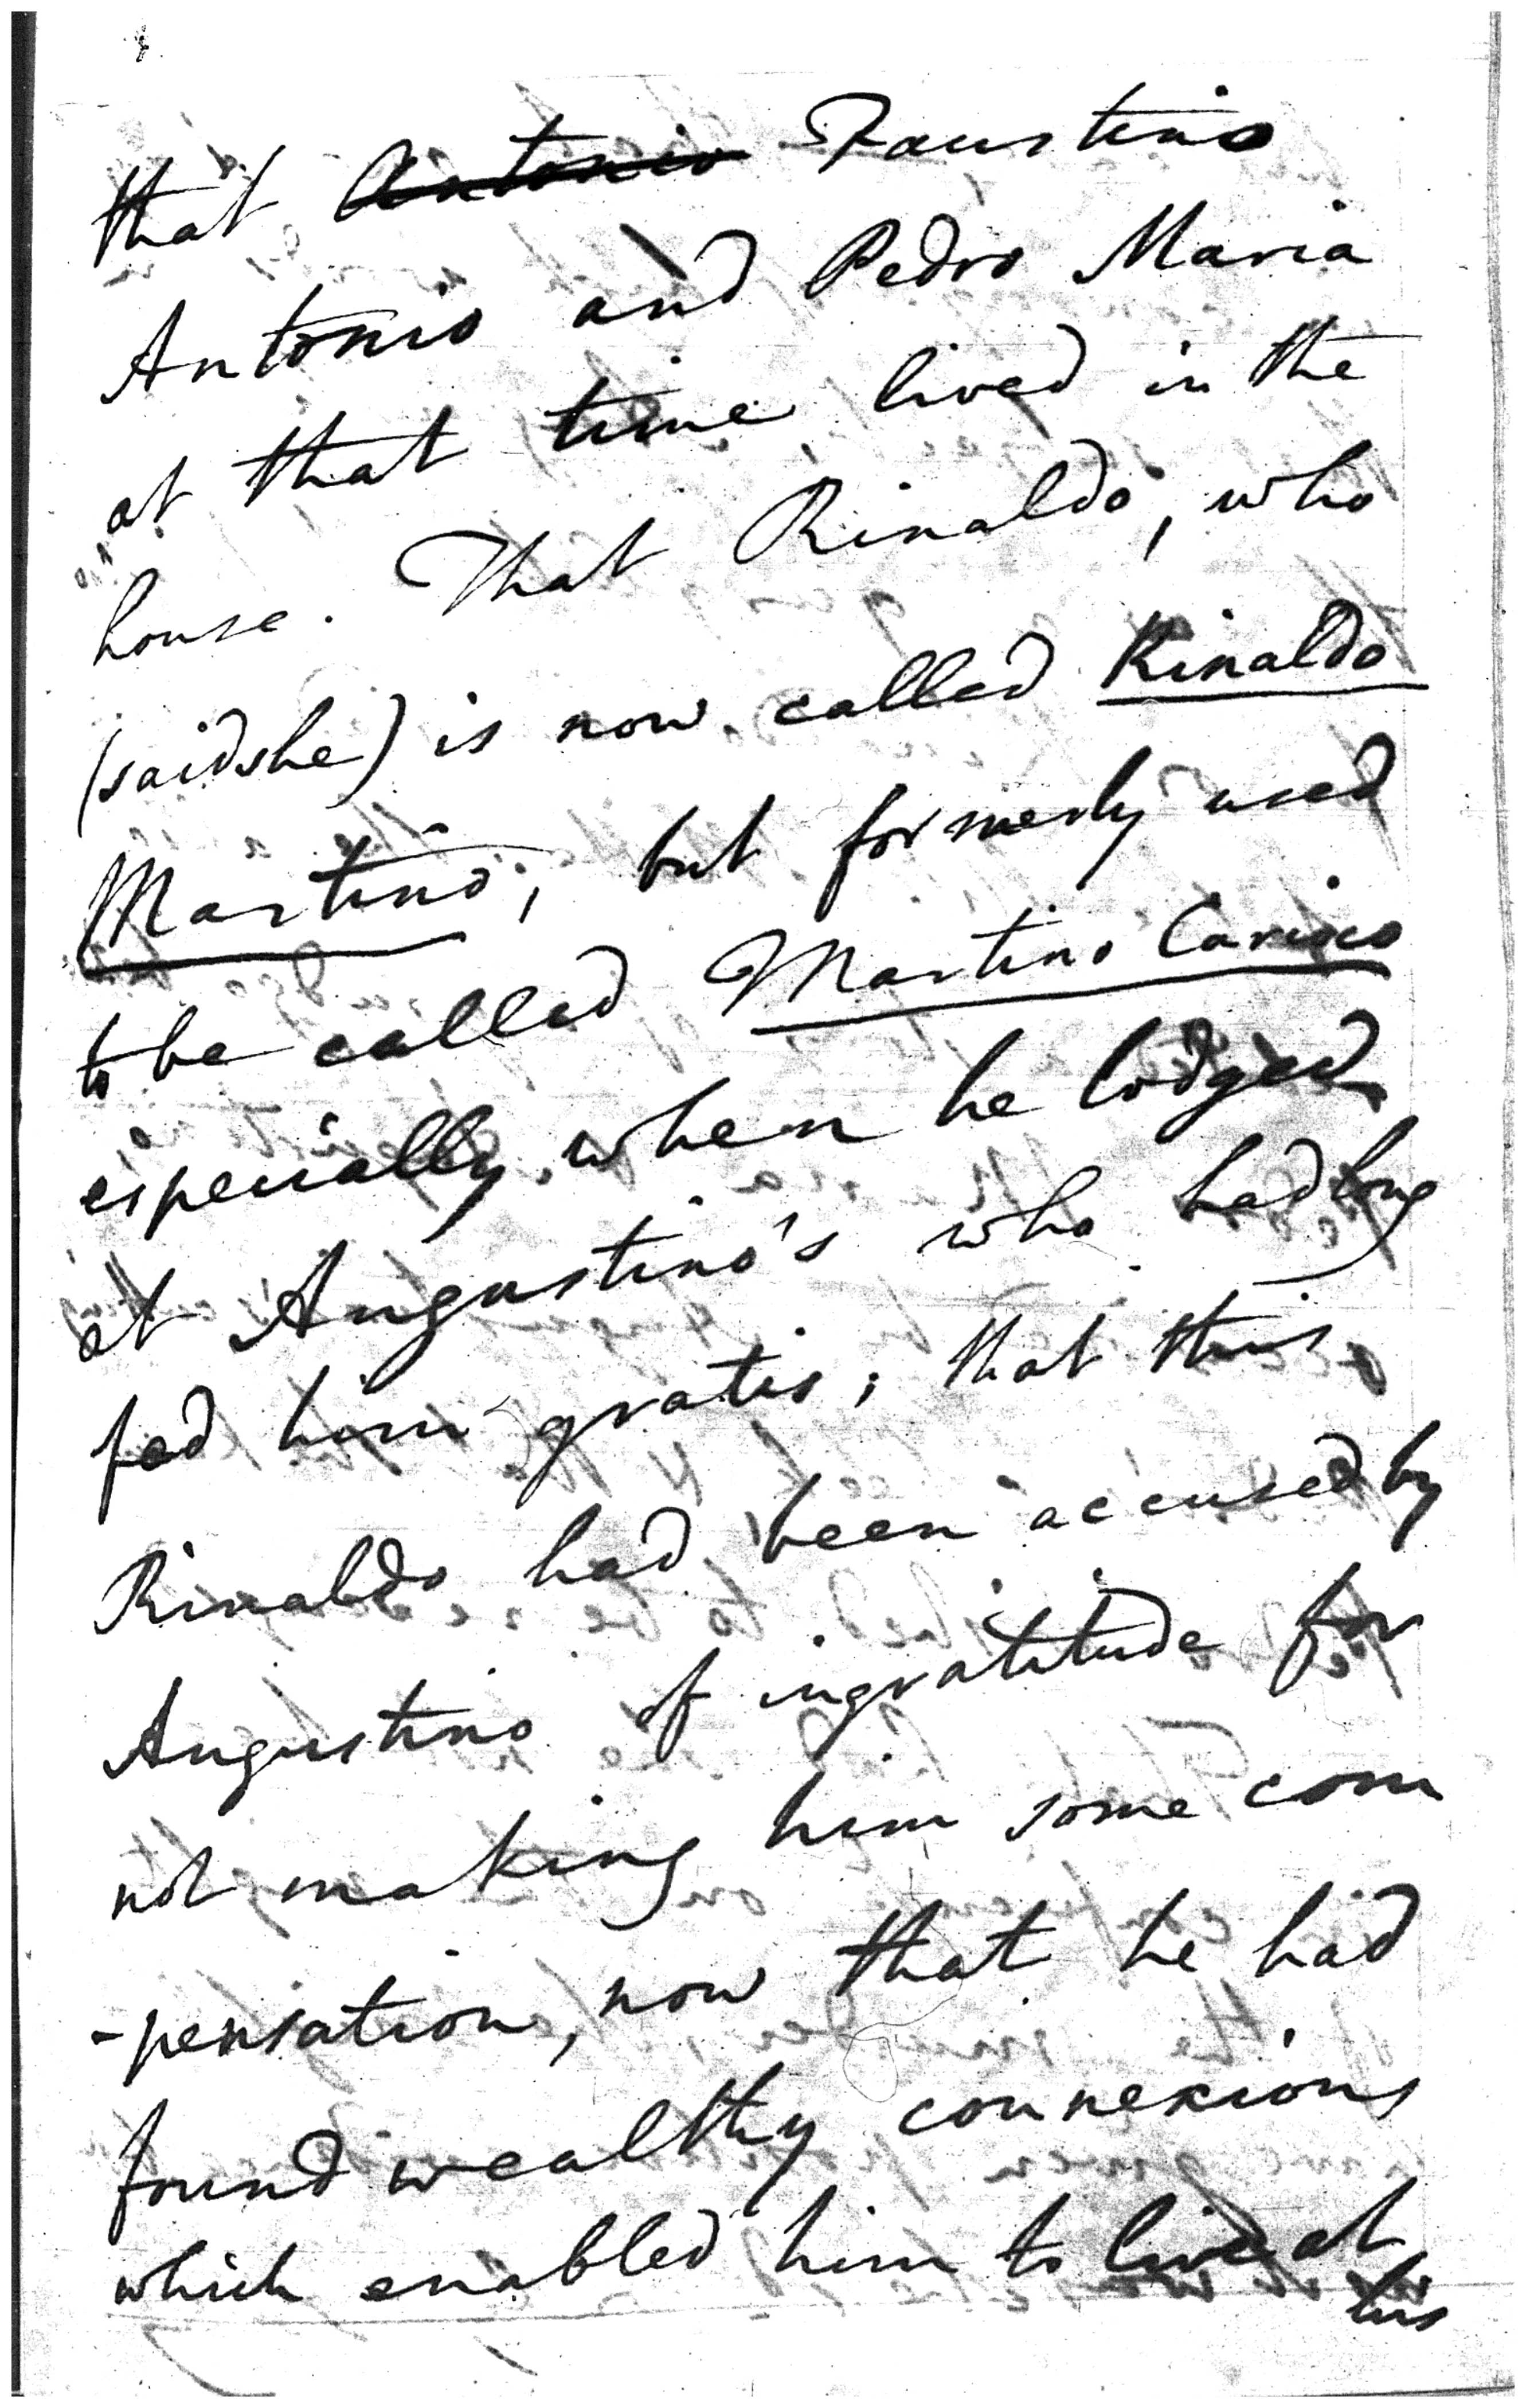 that Antonio Faustino
Antonio and Pedro Maria
at that time lived in the
house. That Rinaldo, who
(said she) is now called Rinaldo
Martino, but formerly used
to be called Martino
especially when he lodged
at Augustino's who had long
fed him gratis; that this
Rinaldo had been accused by
Augustino of ingratitude for
not making him some com
-pensation, now that he had
found wealthy connexions
which enabled him to live at
his